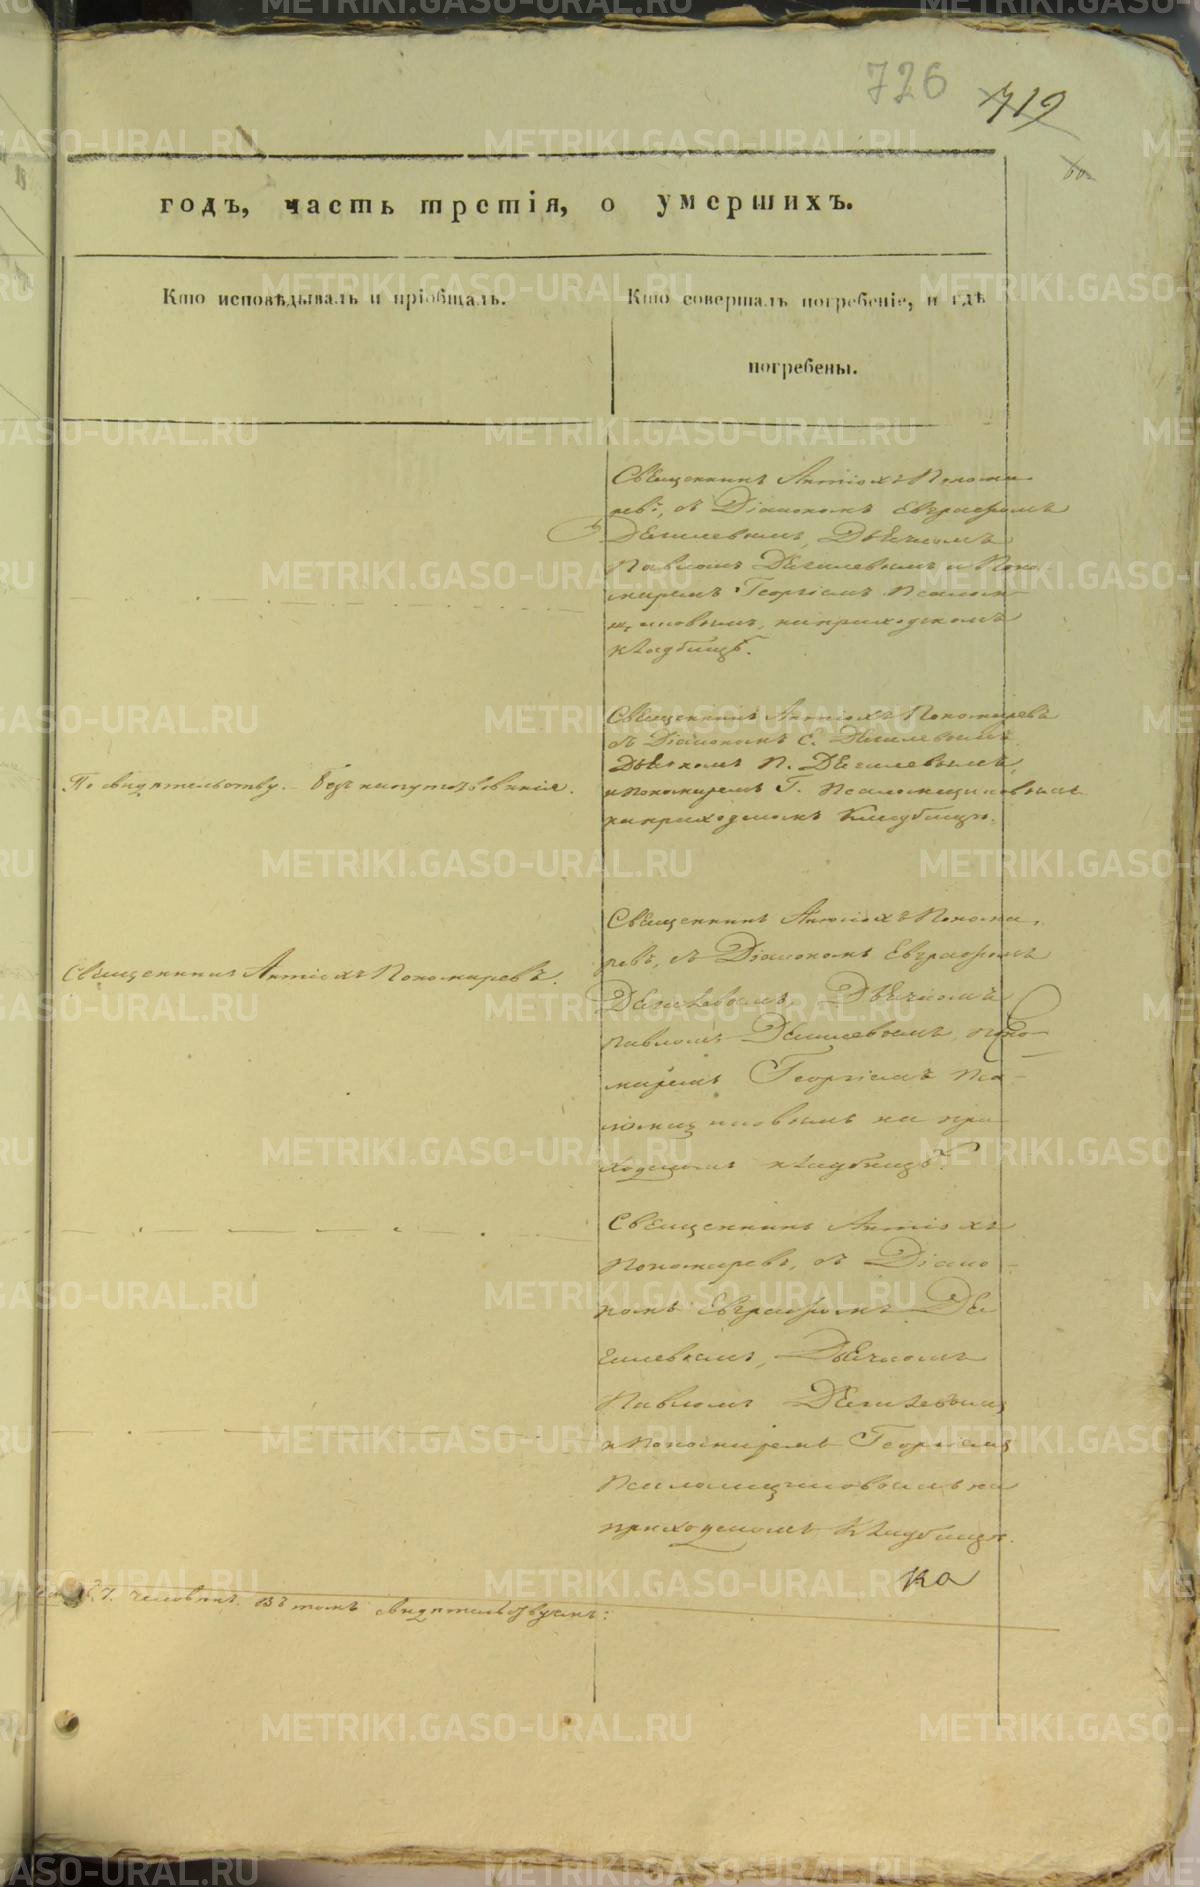 726 719
годъ, часть третія, о умершихъ.
Кто исповѣдывалъ и пріобщалъ.
Кто совершалъ погребеніе, и гдѣ
погребены.
Священникъ Антіохъ Понома-
ревъ, съ Діакономъ Евграфомъ
Дягилевымъ, Дьячкомъ
Павломъ Дягилевымъ и Поно-
маремъ Георгіемъ Псалом-
щиковымъ, на приходскомъ
кладбищѣ.
По свидѣтельству.
Священникъ Антіохъ Пономаревъ
съ Діакономъ Е. Дягилевымъ
Дьячкомъ П. Дягилевымъ,
и Пономаремъ Г. Псаломщиковымъ
на приходскомъ кладбищѣ.
Священникъ Антіохъ Пономаревъ.
Священникъ Антіохъ Понома-
ревъ, съ Діакономъ Евграфомъ
Дягилевымъ, Дьячкомъ
Павломъ Дягилевымъ, поно-
маремъ Георгіемъ Пса-
ломщиковымъ на при-
ходскомъ кладбищѣ.
Священникъ Антіохъ
Пономаревъ, съ Діако-
номъ Евграфомъ Дя-
гилевымъ, Дьячкомъ
Павломъ Дягилевымъ
и Пономаремъ Георгіемъ
Псаломщиковымъ на
приходскомъ кладбищѣ.
ка
7. человѣкъ. Въ томъ свидѣтельствуемъ:
METRIKI.GASO-URAL.RU